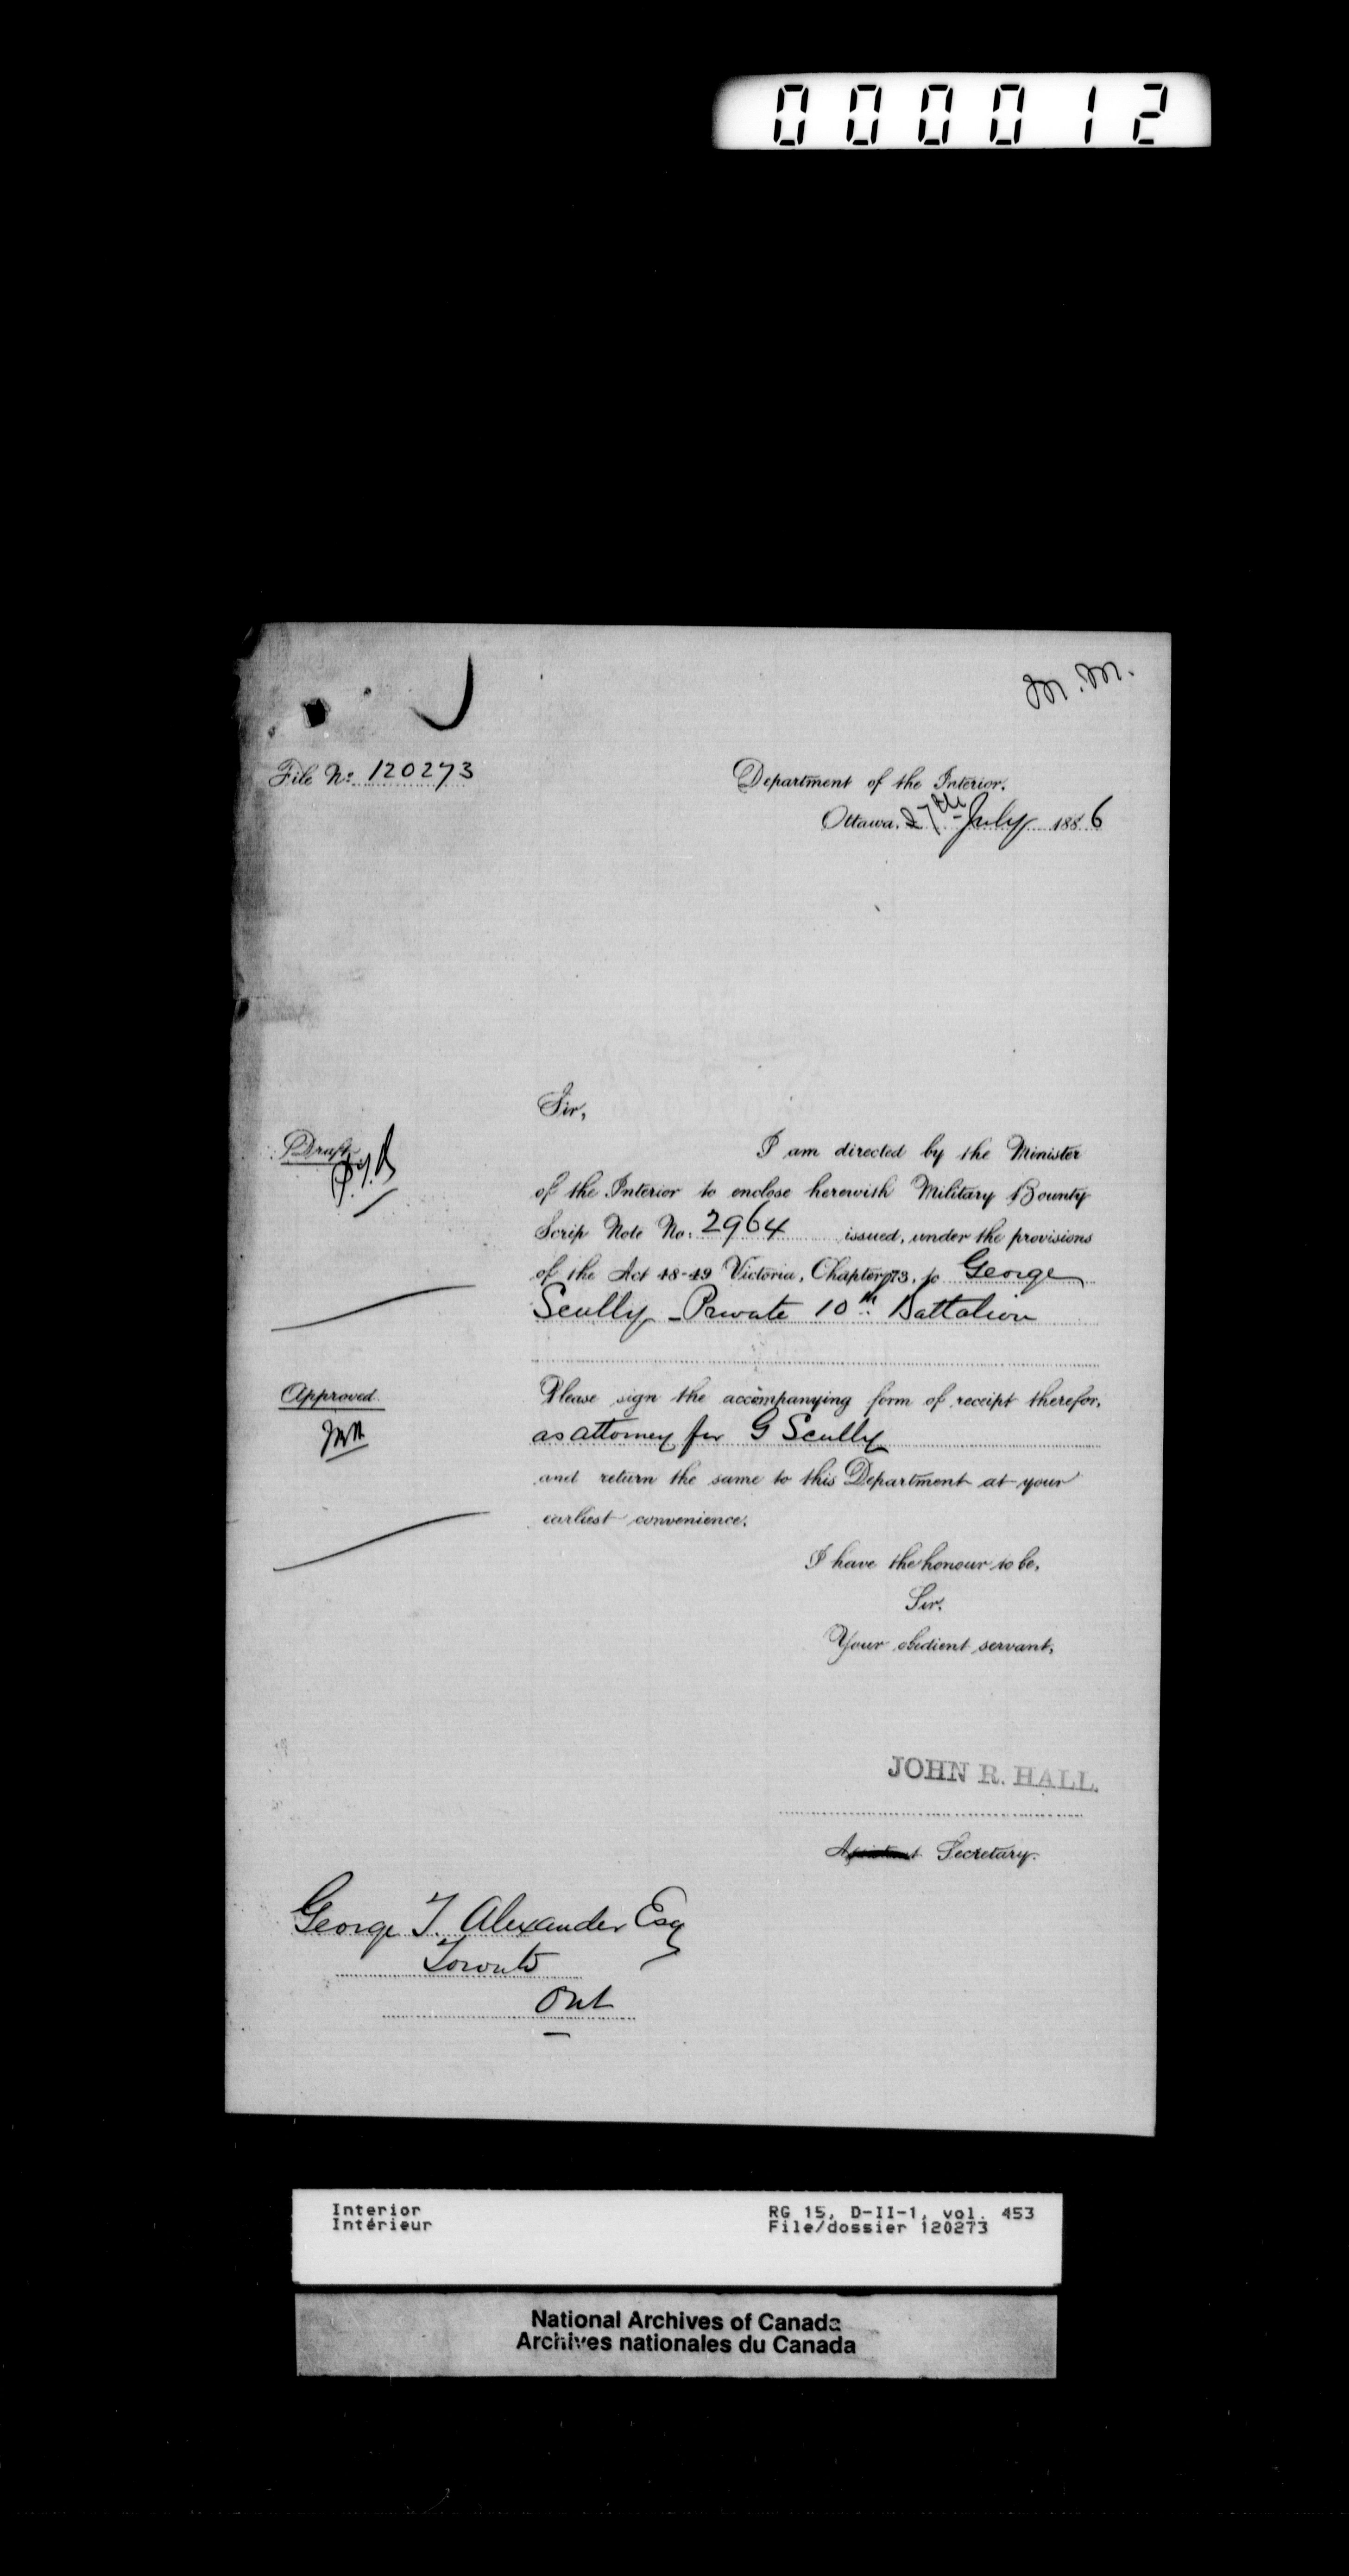 000012
M.M.
File No. 120273
Department of the Interior.
Ottawa, 27th July 1886
Sir,
Draft
I am directed by the Minister
of the Interior to enclose herewith Military Bounty
Scrip Note No. 2964 issued, under the provisions
of the Act 48-49 Victoria, Chapter 73, to George
Scully - Private 10th Battalion
Approved.
Please sign the accompanying form of receipt therefor,
as attorney for G Scully
and return the same to this Department at your
earliest convenience.
I have the honour to be,
Sir,
Your obedient servant,
JOHN R. HALL.
Secretary.
George T. Alexander Esq
Toronto
Ont
Interior
Intérieur
RG 15, D-II-1, vol. 453
File/dossier 120273
National Archives of Canada
Archives nationales du Canada